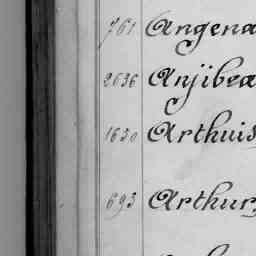 761 Angena
2636 Anjibea
1630 Arthuis
693 Arthur,